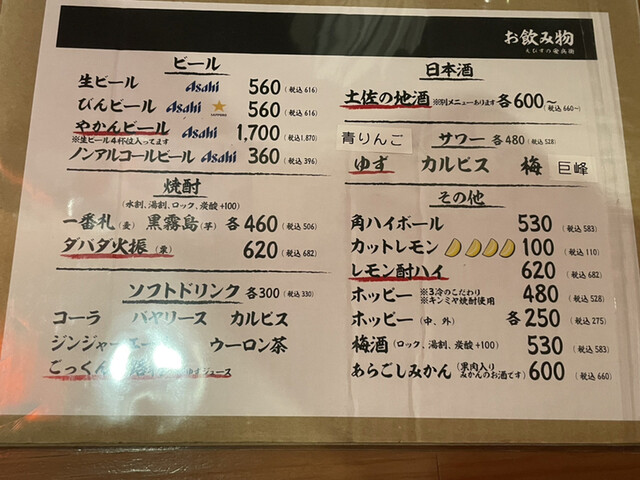 お飲み物
えびすの安兵衛
ビール
生ビール Asahi 560（税込616）
びんビール Asahi SAPPORO 560（税込616）
やかんビール Asahi 1,700（税込1,870）
※生ビール4杯位入ってます
ノンアルコールビール Asahi 360（税込396）
焼酎
（水割、湯割、ロック、炭酸+100）
一番札（麦） 黒霧島（芋） 各460（税込506）
ダバダ火振（栗） 620（税込682）
ソフトドリンク 各300（税込330）
コーラ バヤリース カルピス
ジンジャーエール ウーロン茶
ごっくん ゆずジュース
日本酒
土佐の地酒 ※別メニューあります 各600～（税込660～）
青りんご サワー 各480（税込528）
ゆず カルピス 梅 巨峰
その他
角ハイボール 530（税込583）
カットレモン 100（税込110）
レモン酎ハイ 620（税込682）
ホッピー ※3冷のこだわり ※キンミヤ焼酎使用 480（税込528）
ホッピー（中、外） 各250（税込275）
梅酒（ロック、湯割、炭酸+100） 530（税込583）
あらごしみかん（果肉入りみかんのお酒です） 600（税込660）